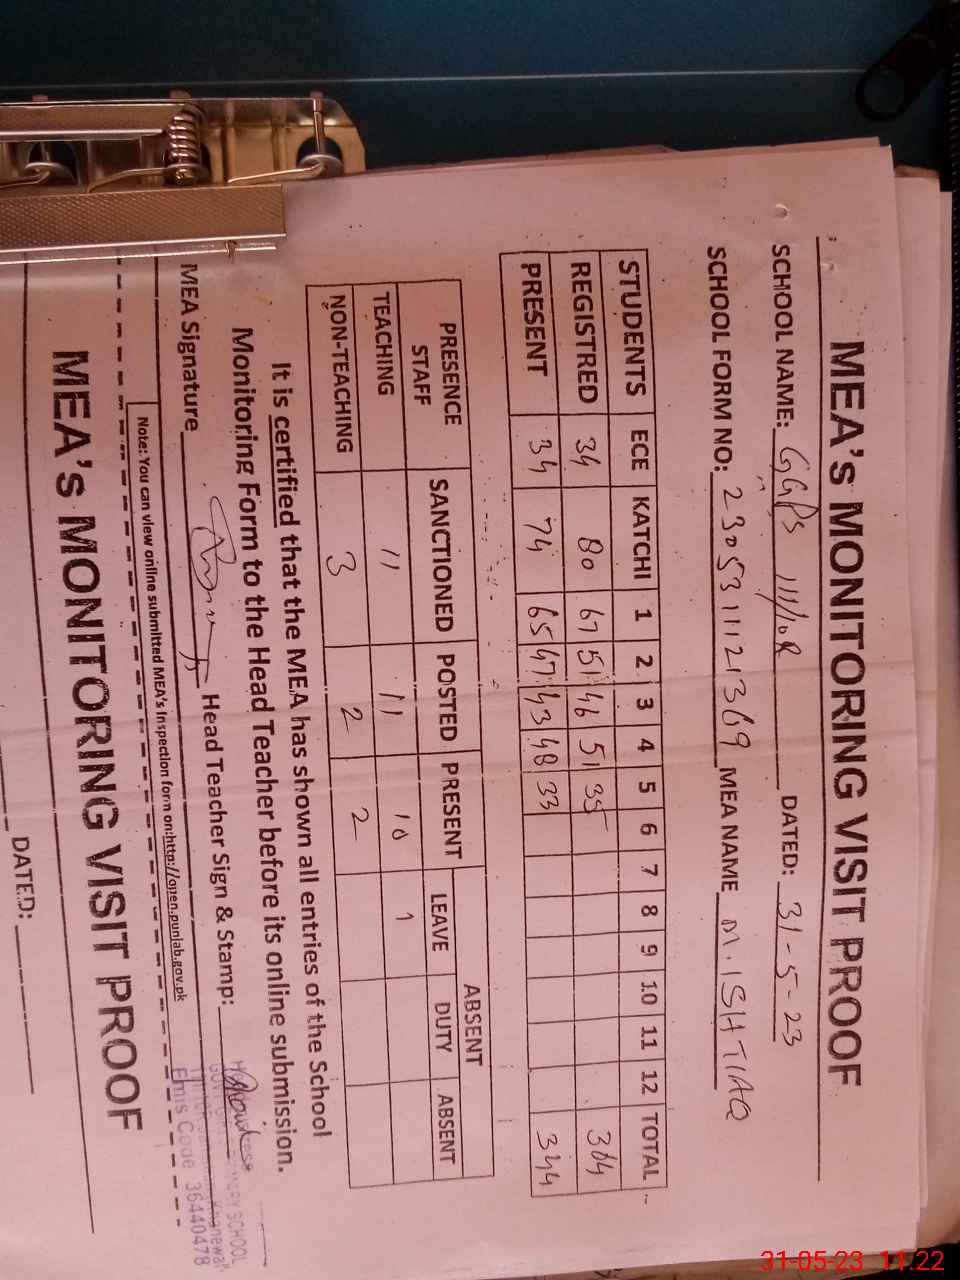 MEA's MONITORING VISIT PROOF
SCHOOL NAME: GGPS 111/10R DATED: 31-5-23
SCHOOL FORM NO: 2305311121369 MEA NAME M.ISHTIAQ
STUDENTS ECE KATCHI 1 2 3 4 5 6 7 8 9 10 11 12 TOTAL
REGISTRED 34 80 67 51 46 51 35 364
PRESENT 34 74 65 47 43 48 33 344
PRESENCE STAFF SANCTIONED POSTED PRESENT ABSENT
LEAVE DUTY ABSENT
TEACHING 11 11 10 1
NON-TEACHING 3 2 2
It is certified that the MEA has shown all entries of the School
Monitoring Form to the Head Teacher before its online submission.
MEA Signature Head Teacher Sign & Stamp:
SCHOOL
Khanewal
Emis Code 36440478
Note: You can view online submitted MEA's inspection form on:http://open.punjab.gov.pk
MEA's MONITORING VISIT PROOF
DATED:
31-05-23 11:22